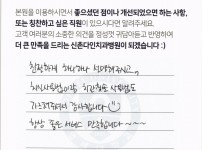 본원을 이용하시면서 좋으셨던 점이나 개선되었으면 하는 사항,
또는 칭찬하고 싶은 직원이 있으시다면 알려주세요.
고객 여러분의 소중한 의견을 정성껏 귀담아듣고 반영하여
더 큰 만족을 드리는 신촌다인치과병원이 되겠습니다 :)
친절하게 하나하나 설명해주시고,
치시사용법이랑 치간칫솔 사용법도
가르쳐주셔서 감사합니다
항상 좋은 서비스 만족합니다~~~